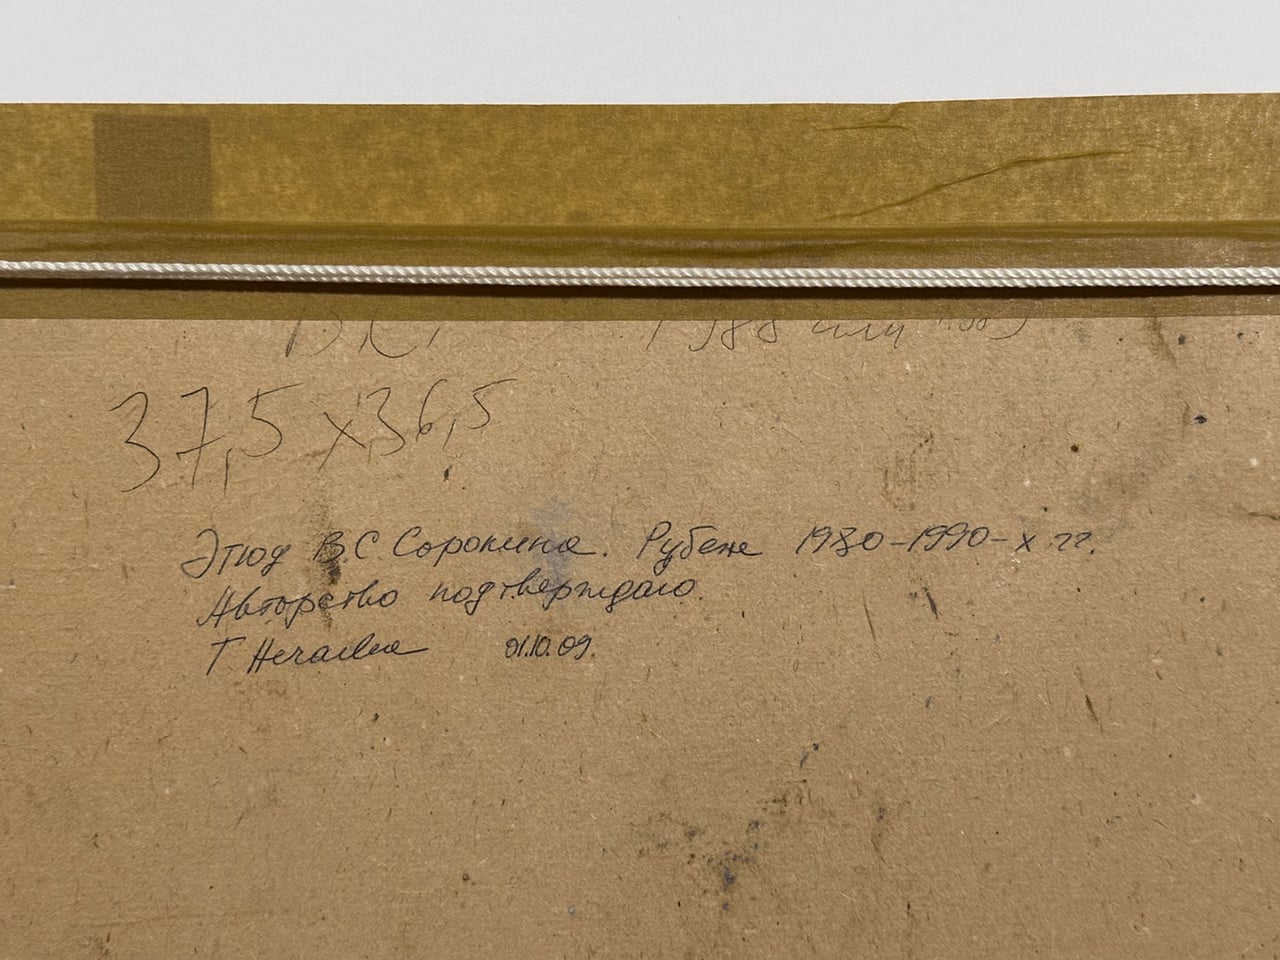 1988 или
37,5 x 36,5
Этюд В.С. Сорокина. Рубеж 1980-1990-х гг.
Авторство подтверждаю.
Т. Нечаева 01.10.09.